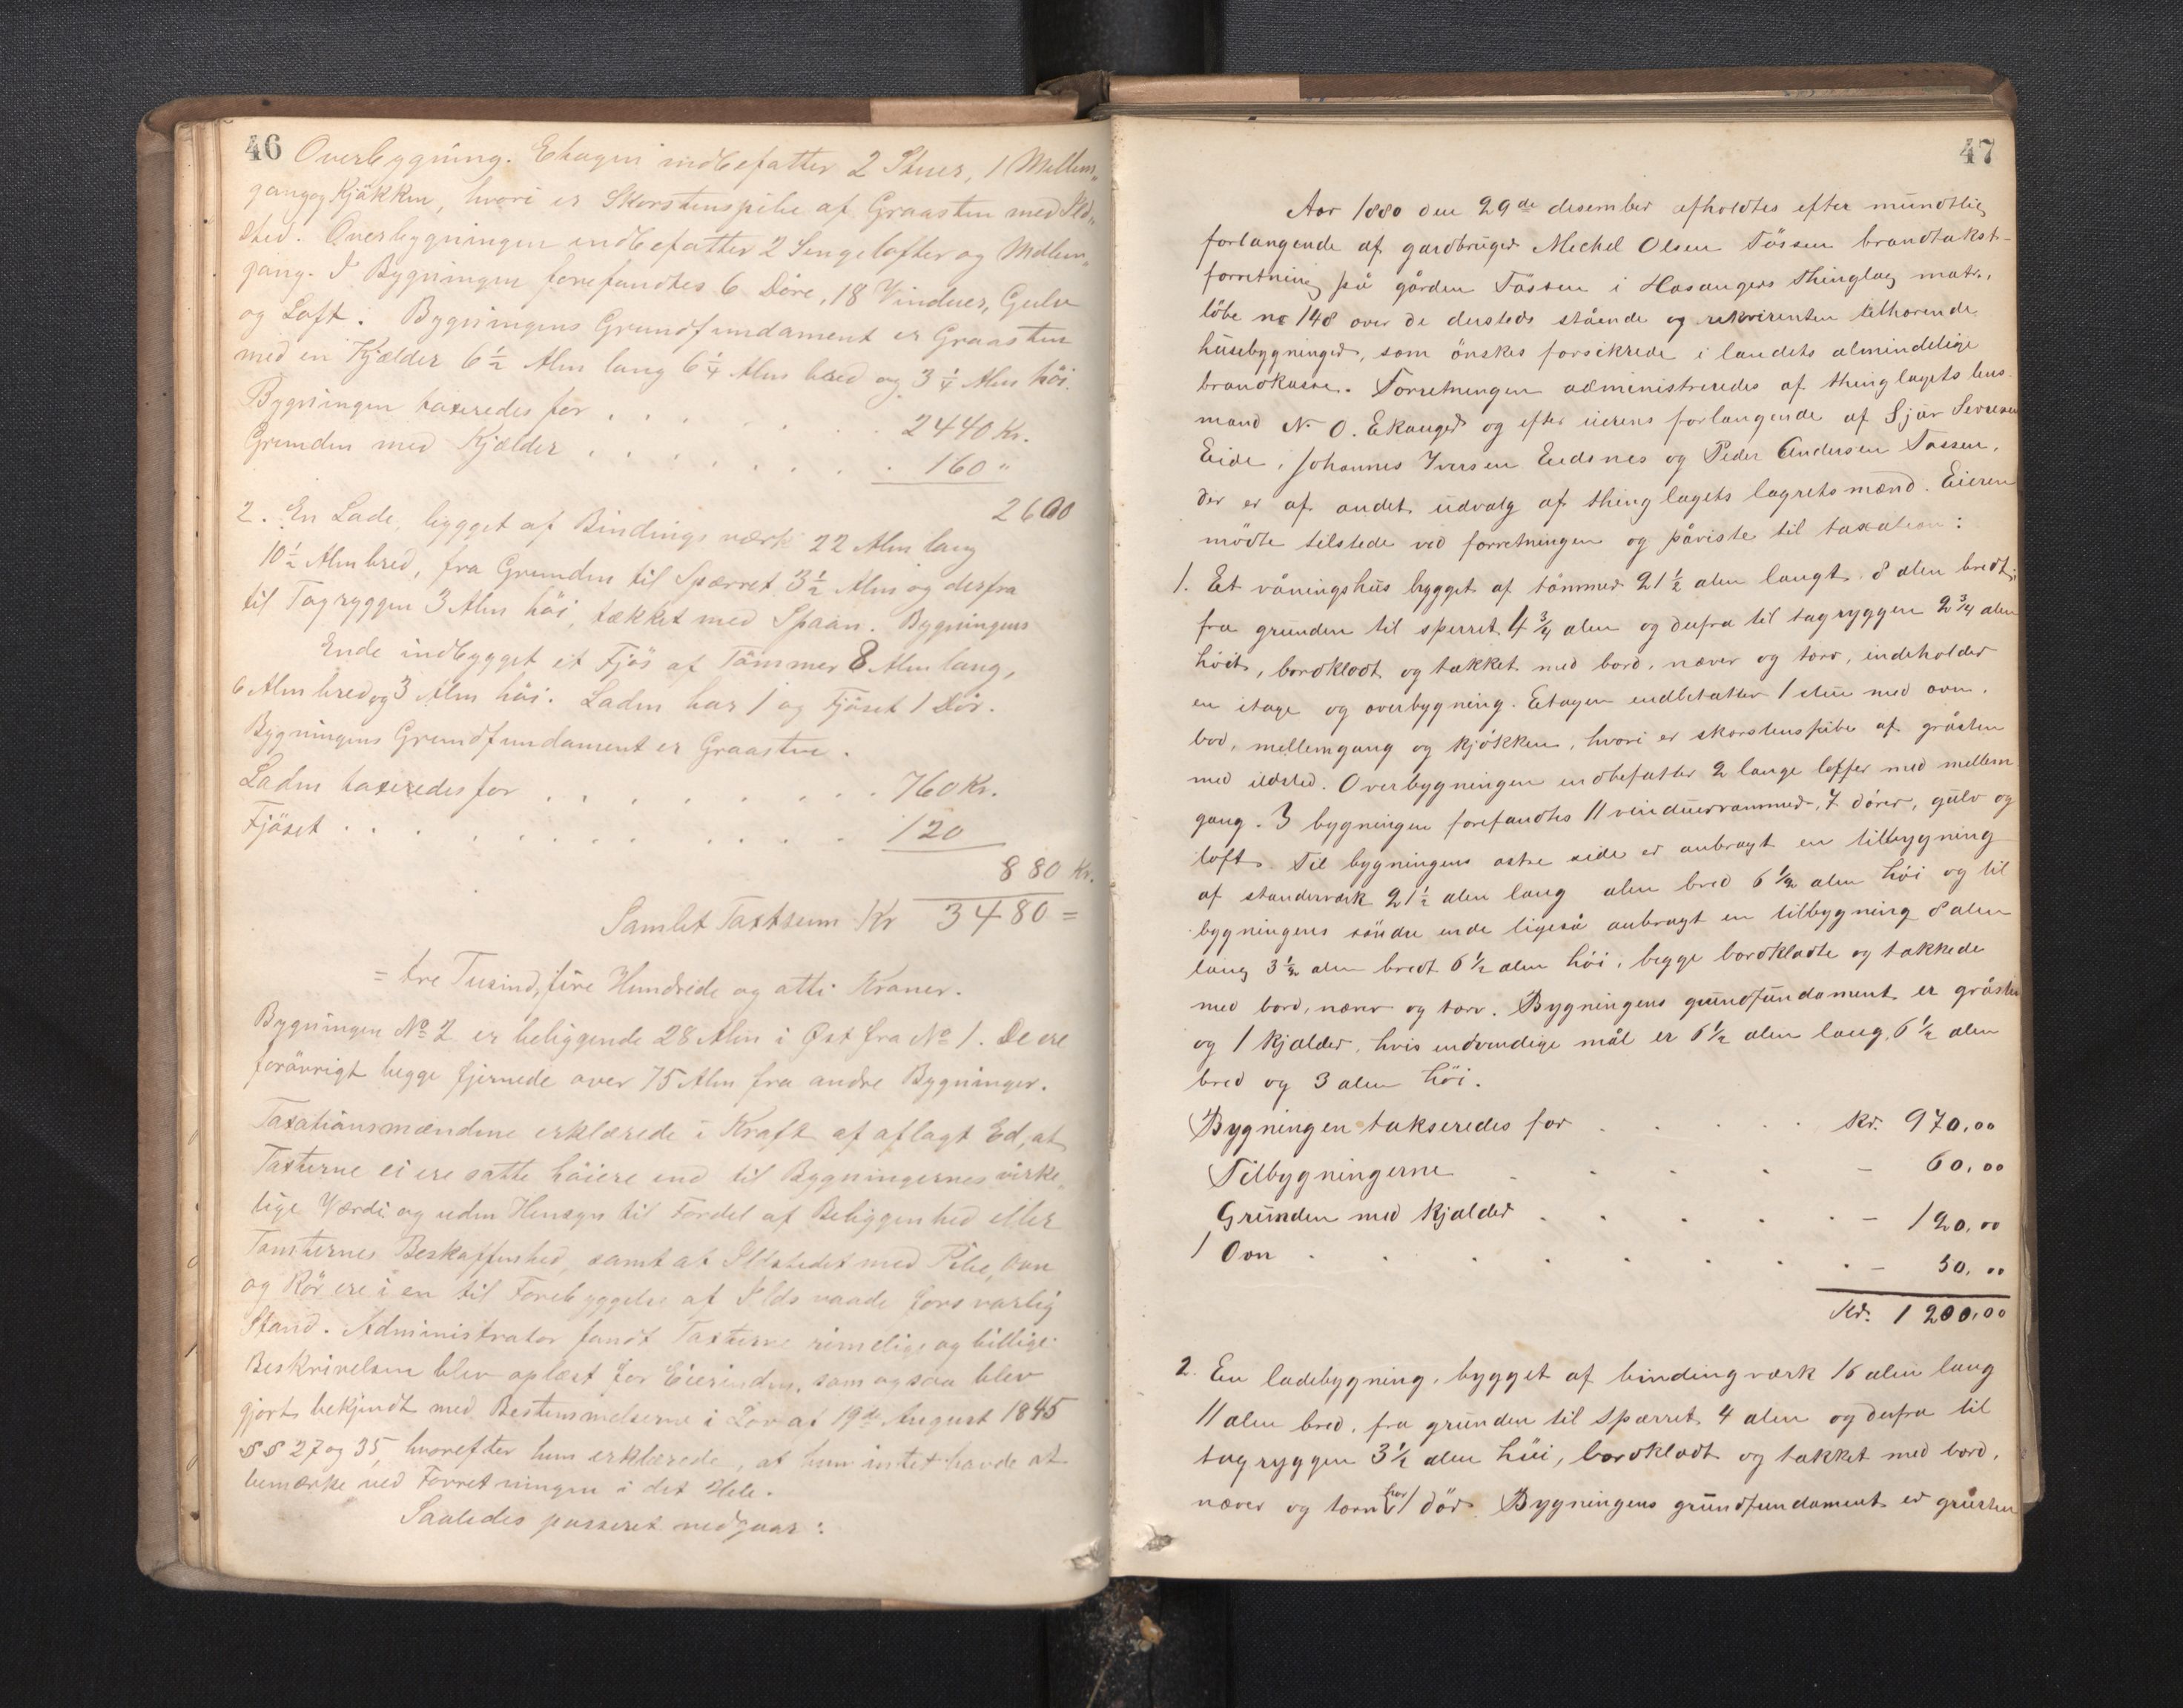 46
Overbygning. Etagen indbefatter 2 Stuer, 1 Mellem„
gang og Kjøkken, hvori er Skorstenspibe af Graasten med Ild„
sted. Overbygningen indbefatter 2 Sengelofter og Mellem„
gang. I Bygningen forefandtes 6 Döre, 18 Vinduer, Gulv
og Loft. Bygningens Grundfundament er Graasten
med en Kjælder 6½ Alen lang 6¼ Alen bred og 3¼ Alen höi.
Bygningen taxeredes for . . . . . . 2440 Kr.
Grunden med Kjælder . . . . . . . 160 "
2600
2. En Lade, bygget af Bindingsværk 22 Alen lang
10½ Alen bred, fra Grunden til Spærret 3½ Alen og derfra
til Tagryggen 3 Alen höi, tækket med Spaan. Bygningens
Ende indbygget et Fjös af Tömmer 8 Alen lang,
6 Alen bred og 3 Alen höi. Laden har 1 og Fjöset 1 Dör.
Bygningens Grundfundament er Graasten.
Laden taxeredes for . . . . . . . . 760 Kr.
Fjöset . . . . . . . . . . . 120
880 Kr.
Samlet Taxtsum Kr 3480 =
= tre Tusind, fire Hundrede og otti Kroner.
Bygningen No 2 er beliggende 28 Alen i Øst fra No 1. De ere
forövrigt begge fjernede over 75 Alen fra andre Bygninger.
Taxationsmændene erklærede i Kraft af aflagt Ed, at
Taxterne ei ere satte höiere end til Bygningernes virke„
lige Værdi og uden Hensyn til Fordel af Beliggenhed eller
Tomternes Beskaffenhed, samt at Ildstedet med Pibe, Ovn
og Rör ere i en til Forebyggelse af Ildsvaade forsvarlig
Stand. Administrator fandt Taxterne rimelige og billige.
Beskrivelsen blev oplæst for Eierinden, som ogsaa blev
gjort bekjendt med Bestemmelserne i Lov af 19de August 1845
§§ 27 og 35, hvorefter hun erklærede, at hun intet havde at
bemærke ved Forretningen i det Hele.
Saaledes passeret vedgaar:
47
Aar 1880 den 29de desember afholdtes efter mundtlig
forlangende af gardbruger Mechel Olsen Tössen brandtakst-
forretning på gården Tössen i Hosangers thinglag matr.
löbe no 148 over de dersteds stående og rekvirenten tilhorende
husebygninger, som önskes forsikrede i landets almindelige
brandkasse. Forretningen administreredes af thinglagets lens-
mand N. O. Ekanger og efter eierens forlangende af Sjur Seversen
Eide, Johannes Iversen Eidsnes og Peder Andersen Tossen,
der er af andet udvalg af thinglagets lagretsmænd. Eieren
mödte tilstede ved forretningen og påviste til taxation:
1. Et våningshus bygget af tömmer 21½ alen langt 8 alen bredt,
fra grunden til sperret 4¾ alen og derfra til tagryggen 2¾ alen
höit, bordklædt og tækket med bord, næver og torv, indeholder
en etage og overbygning. Etagen indbefatter 1 stue med ovn,
bod, mellemgang og kjökken, hvori er skorstenspibe af gråsten
med ildsted. Overbygningen indbefatter 2 lange lofter med mellem
gang. I bygningen forefandtes 11 vinduesrammer, 7 dörer, gulv og
loft. Til bygningens östre side er anbragt en tilbygning
af standerværk 21½ alen lang alen bred 6½ alen höi og til
bygningens söndre ende ligeså anbragt en tilbygning 8 alen
lang 3½ alen bredt 6½ alen höi, begge bordklædte og tækkede
med bord, næver og torv. Bygningens grundfundament er gråsten
og 1 kjælder, hvis indvendige mål er 6½ alen lang, 6½ alen
bred og 3 alen höi.
Bygningen takseredes for . . . . . Kr. 970,00
Tilbygningerne . . . . — 60,00
Grunden med kjælder . . . . . . — 120,00
1 Ovn . . . . . . . . — 50,00
Kr. 1200,00
2. En ladebygning, bygget af bindingværk 16 alen lang
11 alen bred, fra grunden til spærret 4 alen og derfra til
tagryggen 3½ alen höi, bordklædt og tækket med bord,
næver og torv har 1 dör. Bygningens grundfundament er gråsten